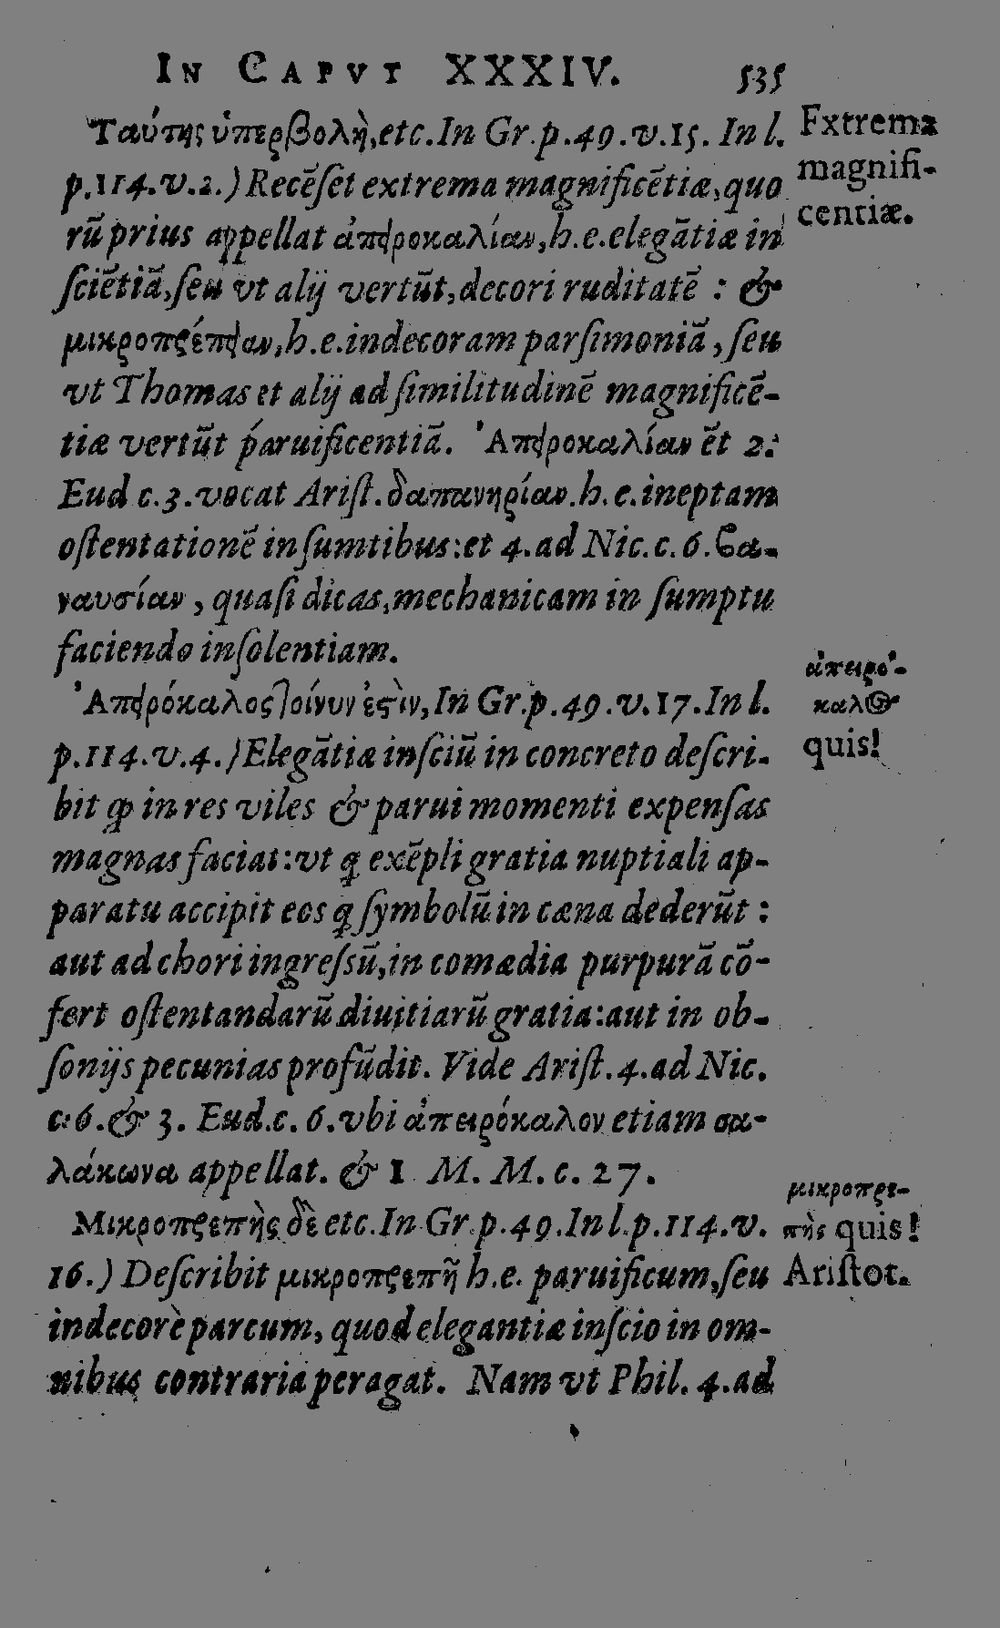 IN CAPVT XXXIV. 535
Ταύτης ὑπερβολὴ, etc. In Gr. p. 49. v. 15. In l.
p. 114. v. 2.) Recẽſet extrema magnificẽtiæ, quo
rũ prius appellat ἀπειροκαλίαν, h. e. elegãtiæ in
ſciẽtiã, ſeu vt alij vertũt, decori ruditatẽ : &
μικροπρέπειαν, h. e. indecoram parſimoniã, ſeu
vt Thomas et alij ad ſimilitudinẽ magnificẽ-
tiæ vertũt paruificentiã. Ἀπειροκαλίαν ẽt 2.
Eud c. 3. vocat Ariſt. δαπανηρίαν. h. e. ineptam
oſtentationẽ in ſumtibus: et 4. ad Nic. c. 6. βα-
ναυσίαν, quaſi dicas, mechanicam in ſumptu
faciendo inſolentiam.
Ἀπειρόκαλος τοίνυν ἐστὶν, In Gr. p. 49. v. 17. In l.
p. 114. v. 4.) Elegãtiæ inſciũ in concreto deſcri-
bit ꝙ in res viles & parui momenti expenſas
magnas faciat: vt ꝗ exẽpli gratia nuptiali ap-
paratu accipit eos ꝗ ſymbolũ in cæna dederũt :
aut ad chori ingreſſũ, in comædia purpurã cõ-
fert oſtentandarũ diuitiarũ gratia: aut in ob-
ſonijs pecunias profũdit. Vide Ariſt. 4. ad Nic.
c. 6. & 3. Eud. c. 6. vbi ἀπειρόκαλον etiam σα-
λάκωνα appellat. & 1 M. M. c. 27.
Μικροπρεπὴς δὲ etc. In Gr. p. 49. In l. p. 114. v.
16.) Deſcribit μικροπρεπῆ h. e. paruificum, ſeu
indecorè parcum, quod elegantiæ inſcio in om-
nibus contraria peragat. Nam vt Phil. 4. ad
Extrema
magnifi-
centiæ.
ἀπειρό-
καλος
quis!
μικροπρε-
πὴς quis!
Ariſtot.